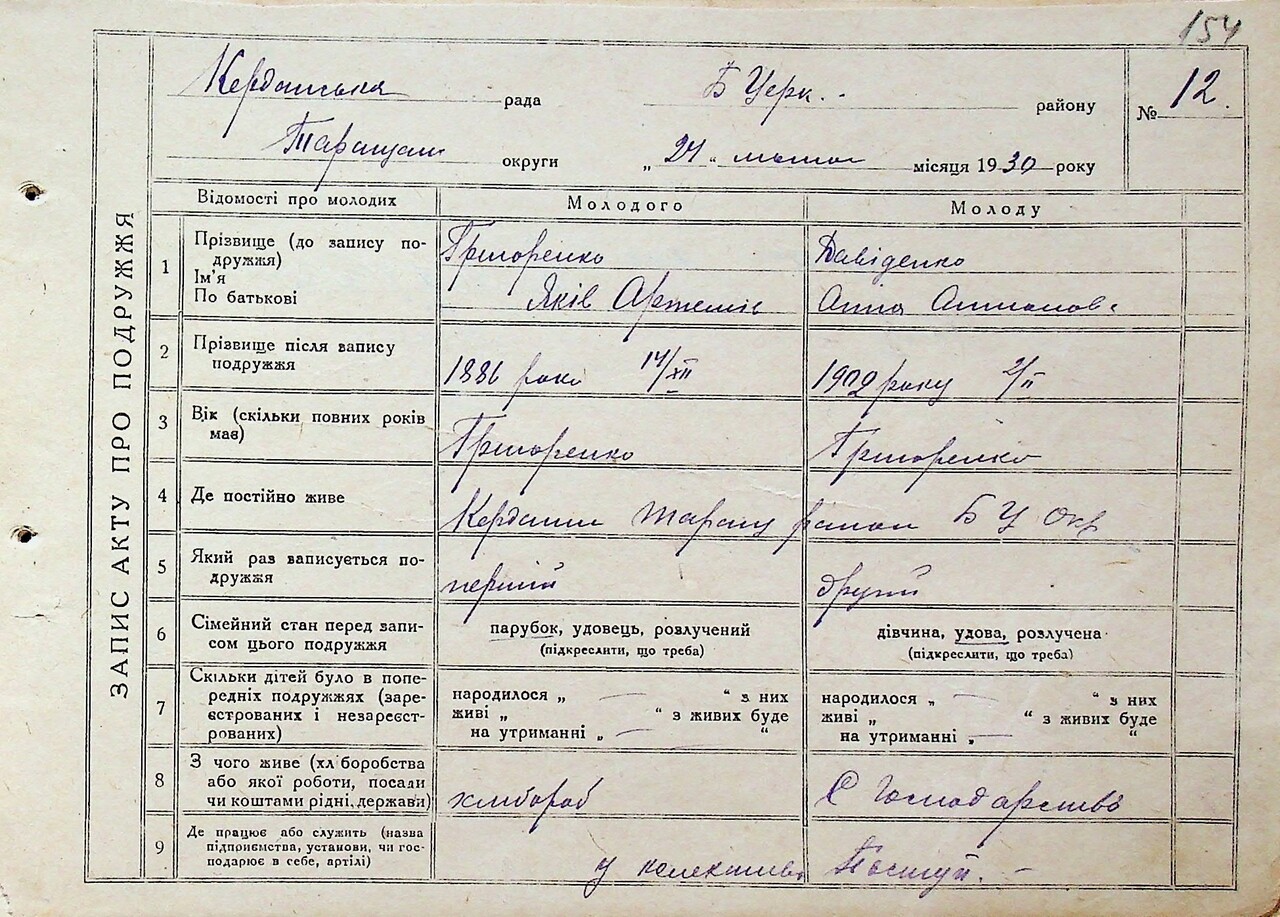 154
Керданська рада Б Церк. району № 12.
Таращан округи „24" лютого місяця 1930 року
ЗАПИС АКТУ ПРО ПОДРУЖЖЯ
Відомості про молодих Молодого Молоду
1 Прізвище (до запису по-
дружжя) Григоренко Давіденко
Ім'я
По батькові Яків Артемів Анна Антонов
2 Прізвище після запису
подружжя 1886 року 14/XII 1902 року 2/II
3 Вік (скільки повних років
має) Григоренко Григоренко
4 Де постійно живе Кердани Таращ район Б Ц Окр
5 Який раз записується по-
дружжя перший другий
6 Сімейний стан перед запи-
сом цього подружжя парубок, удовець, розлучений дівчина, удова, розлучена
(підкреслити, що треба) (підкреслити, що треба)
7 Скільки дітей було в попе-
редніх подружжях (заре-
єстрованих і незареєст-
рованих) народилося „ — " з них народилося „ — " з них
живі „ — " з живих буде живі „ — " з живих буде
на утриманні „ — " на утриманні „ — "
8 З чого живе (хліборобства
або якої роботи, посади
чи коштами рідні, держави) хлібороб С Господарство
9 Де працює або служить (назва
підприємства, установи, чи гос-
подарює в себе, артілі) у колективі